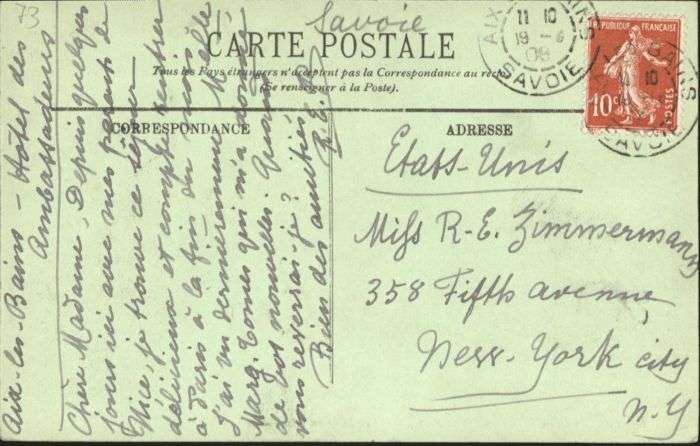 73
Savoie
CARTE POSTALE
Tous les Pays étrangers n'acceptent pas la Correspondance au recto
(Se renseigner à la Poste).
CORRESPONDANCE
ADRESSE
Aix-les-Bains – Hôtel des
Ambassadeurs
Chère Madame, Depuis quelques
jours ici avec mes parents de
Nice, je trouve ce séjour
délicieux et compte rentrer
à Paris à la fin du mois.
J'ai vu dernièrement Melle
Marg. qui m'a donné
de vos nouvelles. Quand
vous reverrai-je?
Bien des amitiés
R. E.
Etats-Unis
Miss R-E. Zimmermann
358 Fifth avenue
New-York city
N-Y
AIX LES BAINS
11 10
19 - 6
SAVOIE
REPUBLIQUE FRANÇAISE
10c
POSTES
BAINS
10
SAVOIE